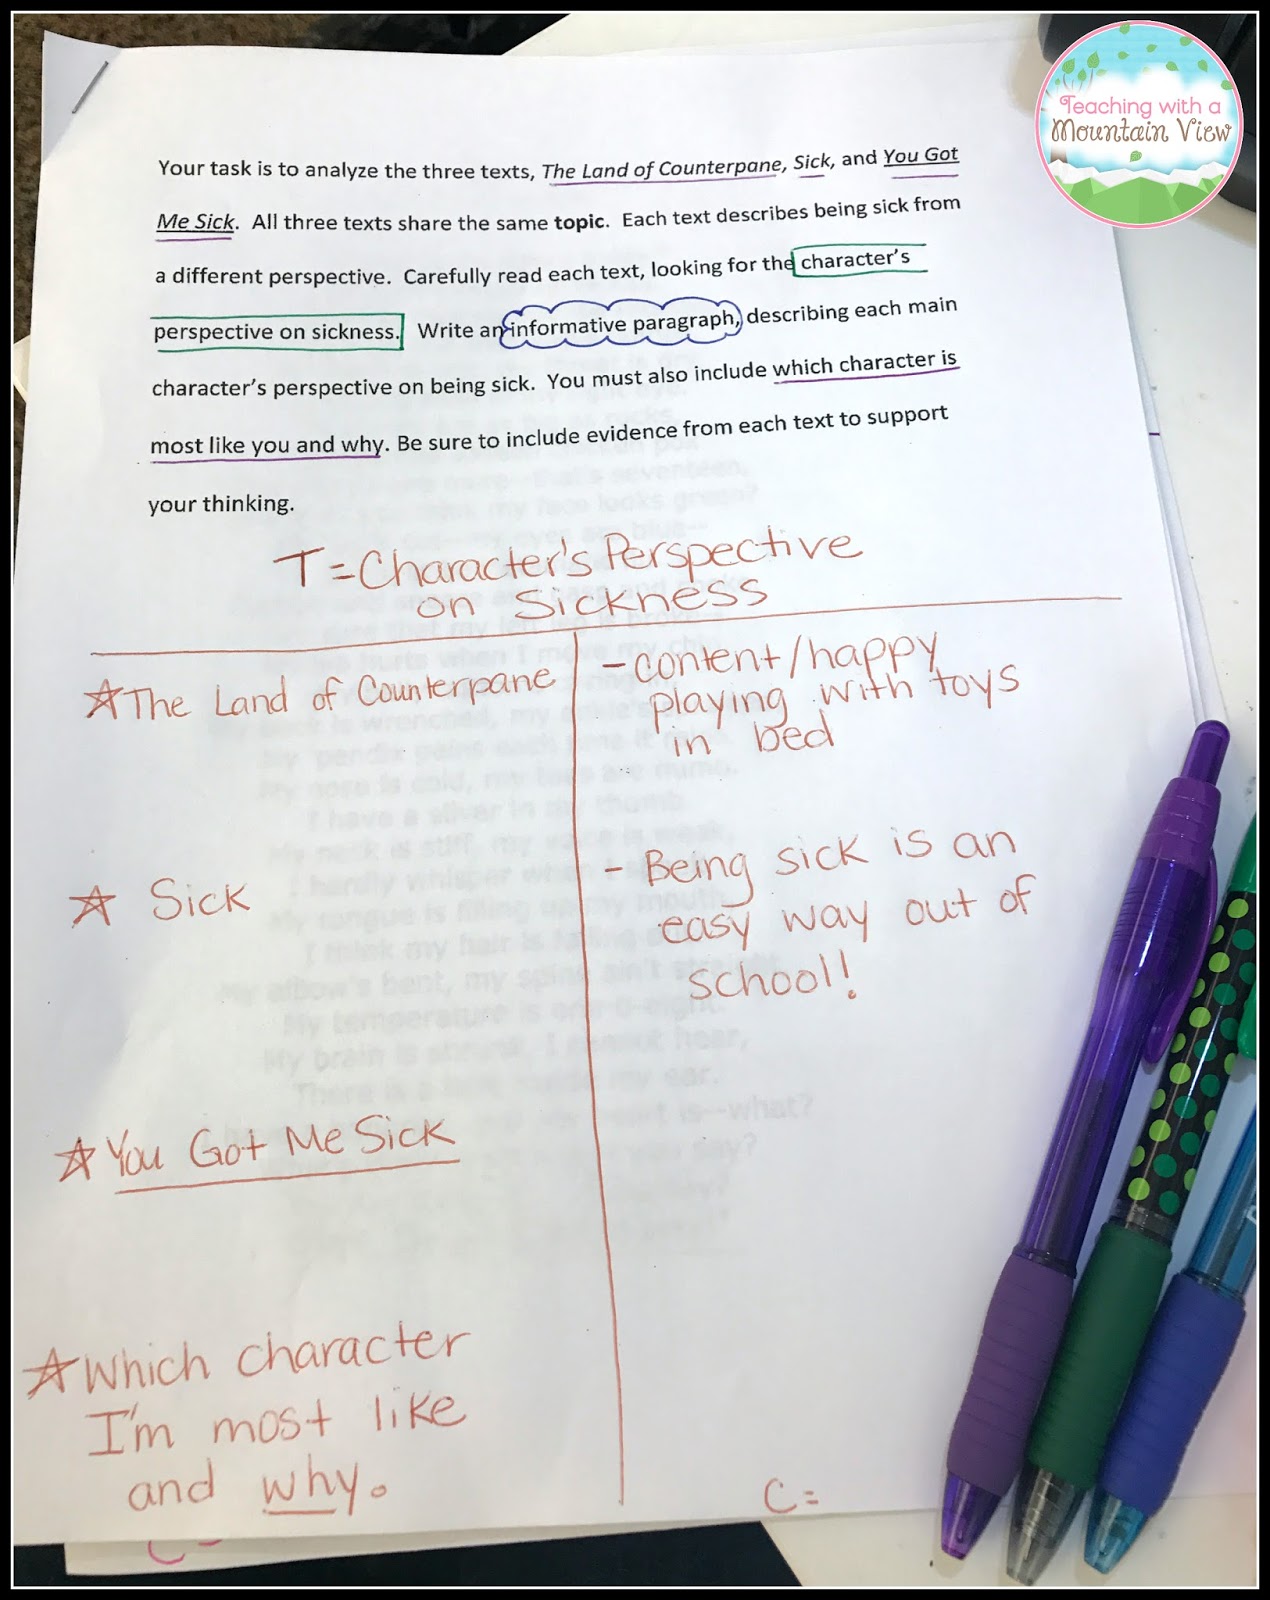 Teaching with a
Mountain View
Your task is to analyze the three texts, The Land of Counterpane, Sick, and You Got
Me Sick. All three texts share the same topic. Each text describes being sick from
a different perspective. Carefully read each text, looking for the character's
perspective on sickness. Write an informative paragraph, describing each main
character's perspective on being sick. You must also include which character is
most like you and why. Be sure to include evidence from each text to support
your thinking.
T=Character's Perspective
on Sickness
☆The Land of Counterpane
-content/happy
playing with toys
in bed
☆ Sick
- Being sick is an
easy way out of
school!
☆You Got Me Sick
☆Which character
I'm most like
and why.
C=